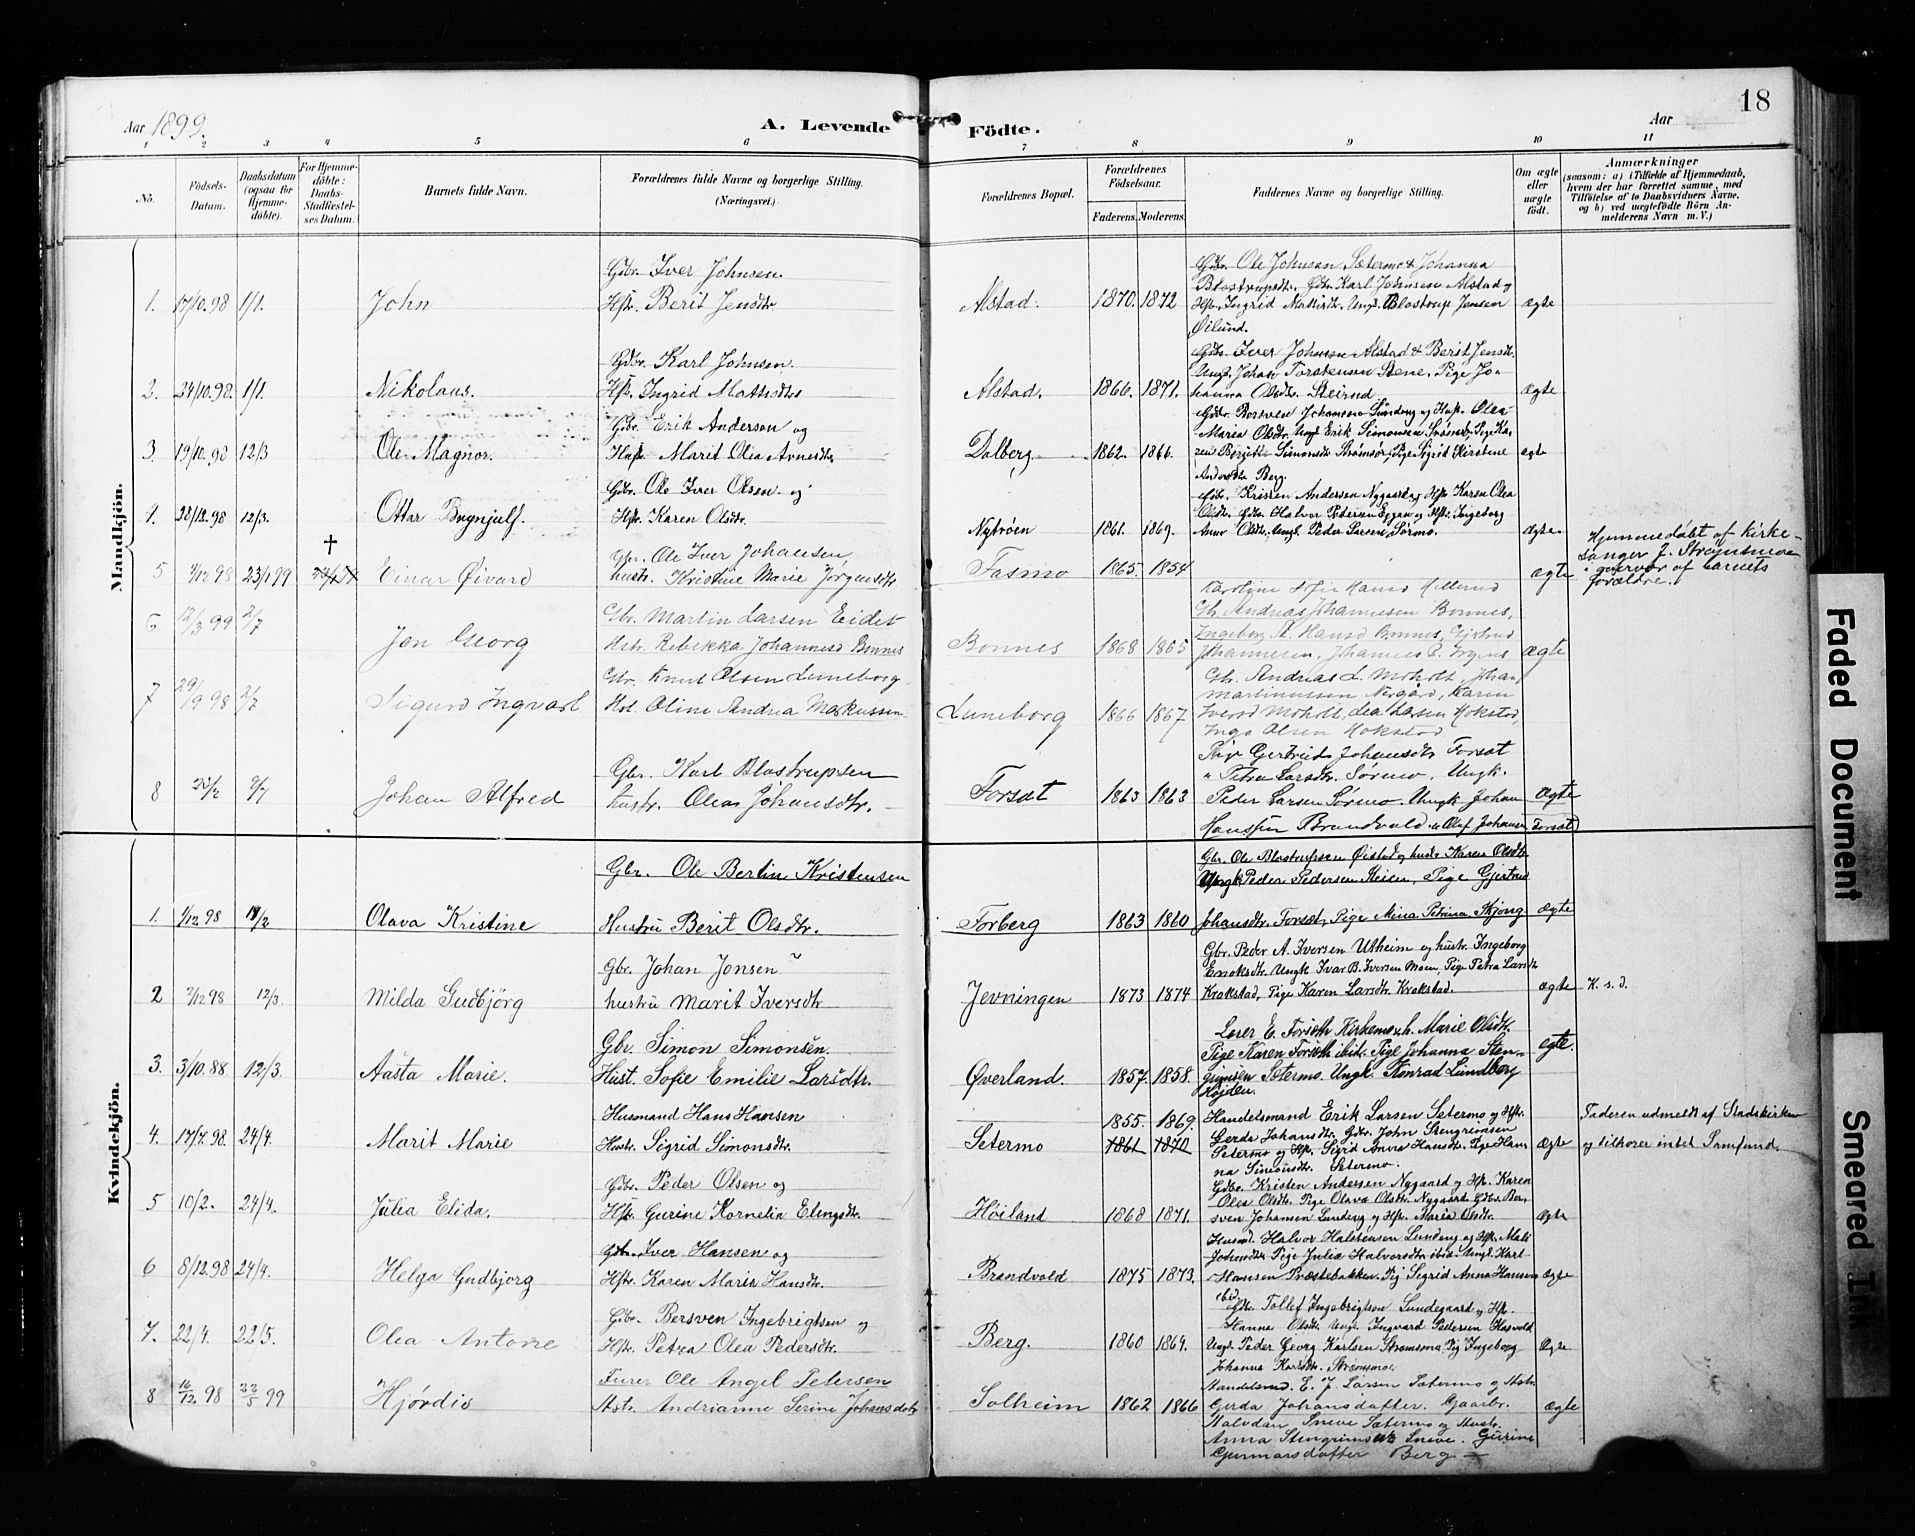 Aar 1899.
A. Levende Födte.
Aar
18
1 2 3 4 5 6 7 8 9 10 11
No.
Födsels-Datum.
Daabsdatum (ogsaa for Hjemme-döbte).
For Hjemme-döbte: Daabs-Stadfæstel-ses Datum.
Barnets fulde Navn.
Forældrenes fulde Navne og borgerlige Stilling. (Næringsvei.)
Forældrenes Bopæl.
Forældrenes Födselsaar.
Faderens. Moderens.
Faddernes Navne og borgerlige Stilling.
Om ægte eller uægte födt.
Anmærkninger (saasom: a) i Tilfælde af Hjemmedaab, hvem der har forrettet samme, med Tilföielse af to Daabsvidners Navne, og b) ved uægtefödte Börn An-melderens Navn m. V.)
Mandkjön.
Gbr. Iver Johnsen.
1. 17/10.98 1/1. John Hstr. Berit Jensdtr. Alstad. 1870. 1872 ægte
Gbr. Ole Johnsen Sætermo & Johanna
Blostrupsdtr. Gbr. Karl Johnsen Alstad og
Hstr. Ingrid Mattisdtr. Ungk. Blostrup Jensen
Øilund.
Gbr. Karl Johnsen.
2. 24/10.98. 1/1. Nikolaus. Hstr. Ingrid Mattisdtr Alstad. 1866. 1871. ægte
Gbr. Iver Johnsen Alstad & Berit Jensdtr.
Ungk. Johan Torstensen Stene, Pige Jo-
hanna Olsdtr. Steinnd
Gbr. Erik Anderson og
3. 19/10.98 12/3 Ole Magnor. Hustr. Marit Olea Arnesdtr Dalberg 1862. 1866. ægte
Gbr. Bersven Johansen Lundberg og Hustr. Olea
Maria Olsdtr. Ungk. Erik Simonsen Strømsør, Pige Ka-
ren Bergitte Simonsdtr Strømsør, Pige Sigrid Kirstine
Andersdtr Berg.
Gbr. Ole Iver Olsen og
4. 28/12.98 12/3. Ottar Brynjulf. Hstr. Karen Olsdtr. Nytrøen 1861. 1869. ægte
Gbr. Kristen Andersen Nygaard og Hstr Karen Olea
Olsdtr. Gbr. Halvor Petersen Eggen og Hstr. Ingeborg
Anna Olsdtr. Ungk. Peder Larsen Sørmo.
†
Gbr. Ole Iver Johansen,
5 9/12 98 23/1 99 Einar Øivard hustr. Kristine Marie Jørgensdtr Fasmo 1865. 1854 ægte
Hjemmedøbt af Kirke-
sanger J. Strømsmoe
i overvær af barnets
forældre.
Karoline Sofie Hansd
Gbr. Martin Larsen Eidet
6 12/3 99 2/7 Jon Georg Hstr. Rebekka Johannesd Bonnes Bonnes 1868 1865 ægte
Gbr. Andreas Johannesen Bonnes,
Ingeborg A. Hansd Bonnes, Gjertrud
Johannesen, Johannes P.
Gbr. Knut Olsen Luneborg
7 29/9 98 2/7 Sigurd Ingvart Hst. Oline Andrea Markussen Luneborg 1866 1867
Gbr. Andreas L. Moholt, Johan
Martinussen Nergård, Karen
Iversd Moholt, Lea Larsen Hokstad,
Inga Olsen Hokstad
Gbr. Karl Blostrupsen
8 22/2 9/7 Johan Alfred hustr. Olea Johansdtr. Forsæt 1863 1863 ægte
Pige Gertrud Johansdtr Forsæt
" Petra Larsdtr. Sørmo. Ungk.
Peder Larsen Sørmo. Ungk Johan
Hanssen Brandvold. " Olaf Johansen Forsæt
Kvindekjön.
Gbr. Ole Bertin Kristensen
1. 1/12 98 19/2 Olava Kristine Hustru Berit Olsdtr. Forberg 1863 1860 ægte
Gbr. Ole Blostrupsen Øistad og hustr Karen Olsdtr
Ungk Peder Pedersen Steien, Pige Gjertrud
Johansdtr. Forsæt, Pige Mina Petrina Skjong
Gbr. Johan Jonsen
2 2/12 98 12/3. Milda Gudbjörg hustru Marit Iversdtr Jevningen 1873 1874 ægte K. s. d.
Gbr. Peder A. Iversen Utheim og hustr. Ingeborg
Enoksdtr. Ungk Ivar B. Iversen Moen, Pige Petra Larsdtr
Krokstad, Pige Karen Larsdtr. Krokstad.
Gbr. Simon Simonsen.
3. 3/10.88 12/3. Aasta Marie. Hust. Sofie Emilie Larsdtr. Øverland. 1857. 1858. ægte.
Lærer E. Forseth Kirkemo & h. Marie Olsdtr.
Pige Karen Forseth ibid. Pige Johanna Sten-
grimsen Sætermo. Ungk. Konrad Lundberg
Højden.
Husmand Hans Hansen
4. 17/7.98. 24/4. Marit Marie Hustr. Sigrid Simonsdtr. Setermo 1855. 1869. 1861 1870 Ægte
Handelsmand Erik Larsen Setermo og Hstr.
Gerda Johansdtr. Gbr. John Stengrimsen
Setermo og Hstr. Sigrid Anna Hansdtr. Pige Han-
na Simonsdtr. Setermo.
Faderen udmeldt af Statskirken
og tilhører intet Samfund.
Gbr. Peder Olsen og
5 10/2. 24/4. Julia Elida. Hstr. Gurine Kornelia Elingsdtr. Høiland 1868 1871. Ægte
Gbr. Kristen Andersen Nygaard og Hstr. Karen
Olea Olsdtr. Pige Olava Olsdtr Nygaard. Gbr. Ber-
sven Johansen Lundberg og Hstr. Maria Olsdtr.
Gbr. Iver Hansen og
6 8/12.98 24/4. Helga Gudbjorg Hstr. Karen Marie Hansdtr. Brandvold 1875 1873. Ægte
Husmd. Halvor Halstensen Lundeng og Hstr. Mali
Johnsdtr Pige Julia Halvorsdtr ibid. Ungk. Karl
Hansen Præstebakken. Pig. Sigrid Anna Hansen
ibid.
Gbr. Bersven Ingebrigtsen og
7. 22/4. 22/5. Olea Antone Hstr. Petra Olea Pedersdtr. Berg. 1860 1864. Ægte
Gbr. Tollef Ingebrigtsen Lundegaard og Hstr.
Hanna Olsdtr. Ungk. Ingvard Pedersen Hasvold
Ungk. Peder Georg Karlsen Strømsmo. Pig Ingeborg
Johanna Karlsdtr. Strømsmo.
Furer Ole Angel Petersen
8 16/12 98 22/5 99 Hjördis Hstr. Andrianne Serine Johansdotr Solheim 1862 1866 Ægte
Handelsmd. E. J. Larsen Sætermo og Hstr.
Gerda Johansdatter. Gaarbr.
Halvdan Sneve Sætermo og Hustr.
Anna Stengrimsen Sneve. Gurine
Gunnarsdatter Berg
Faded Document
Smeared Ink